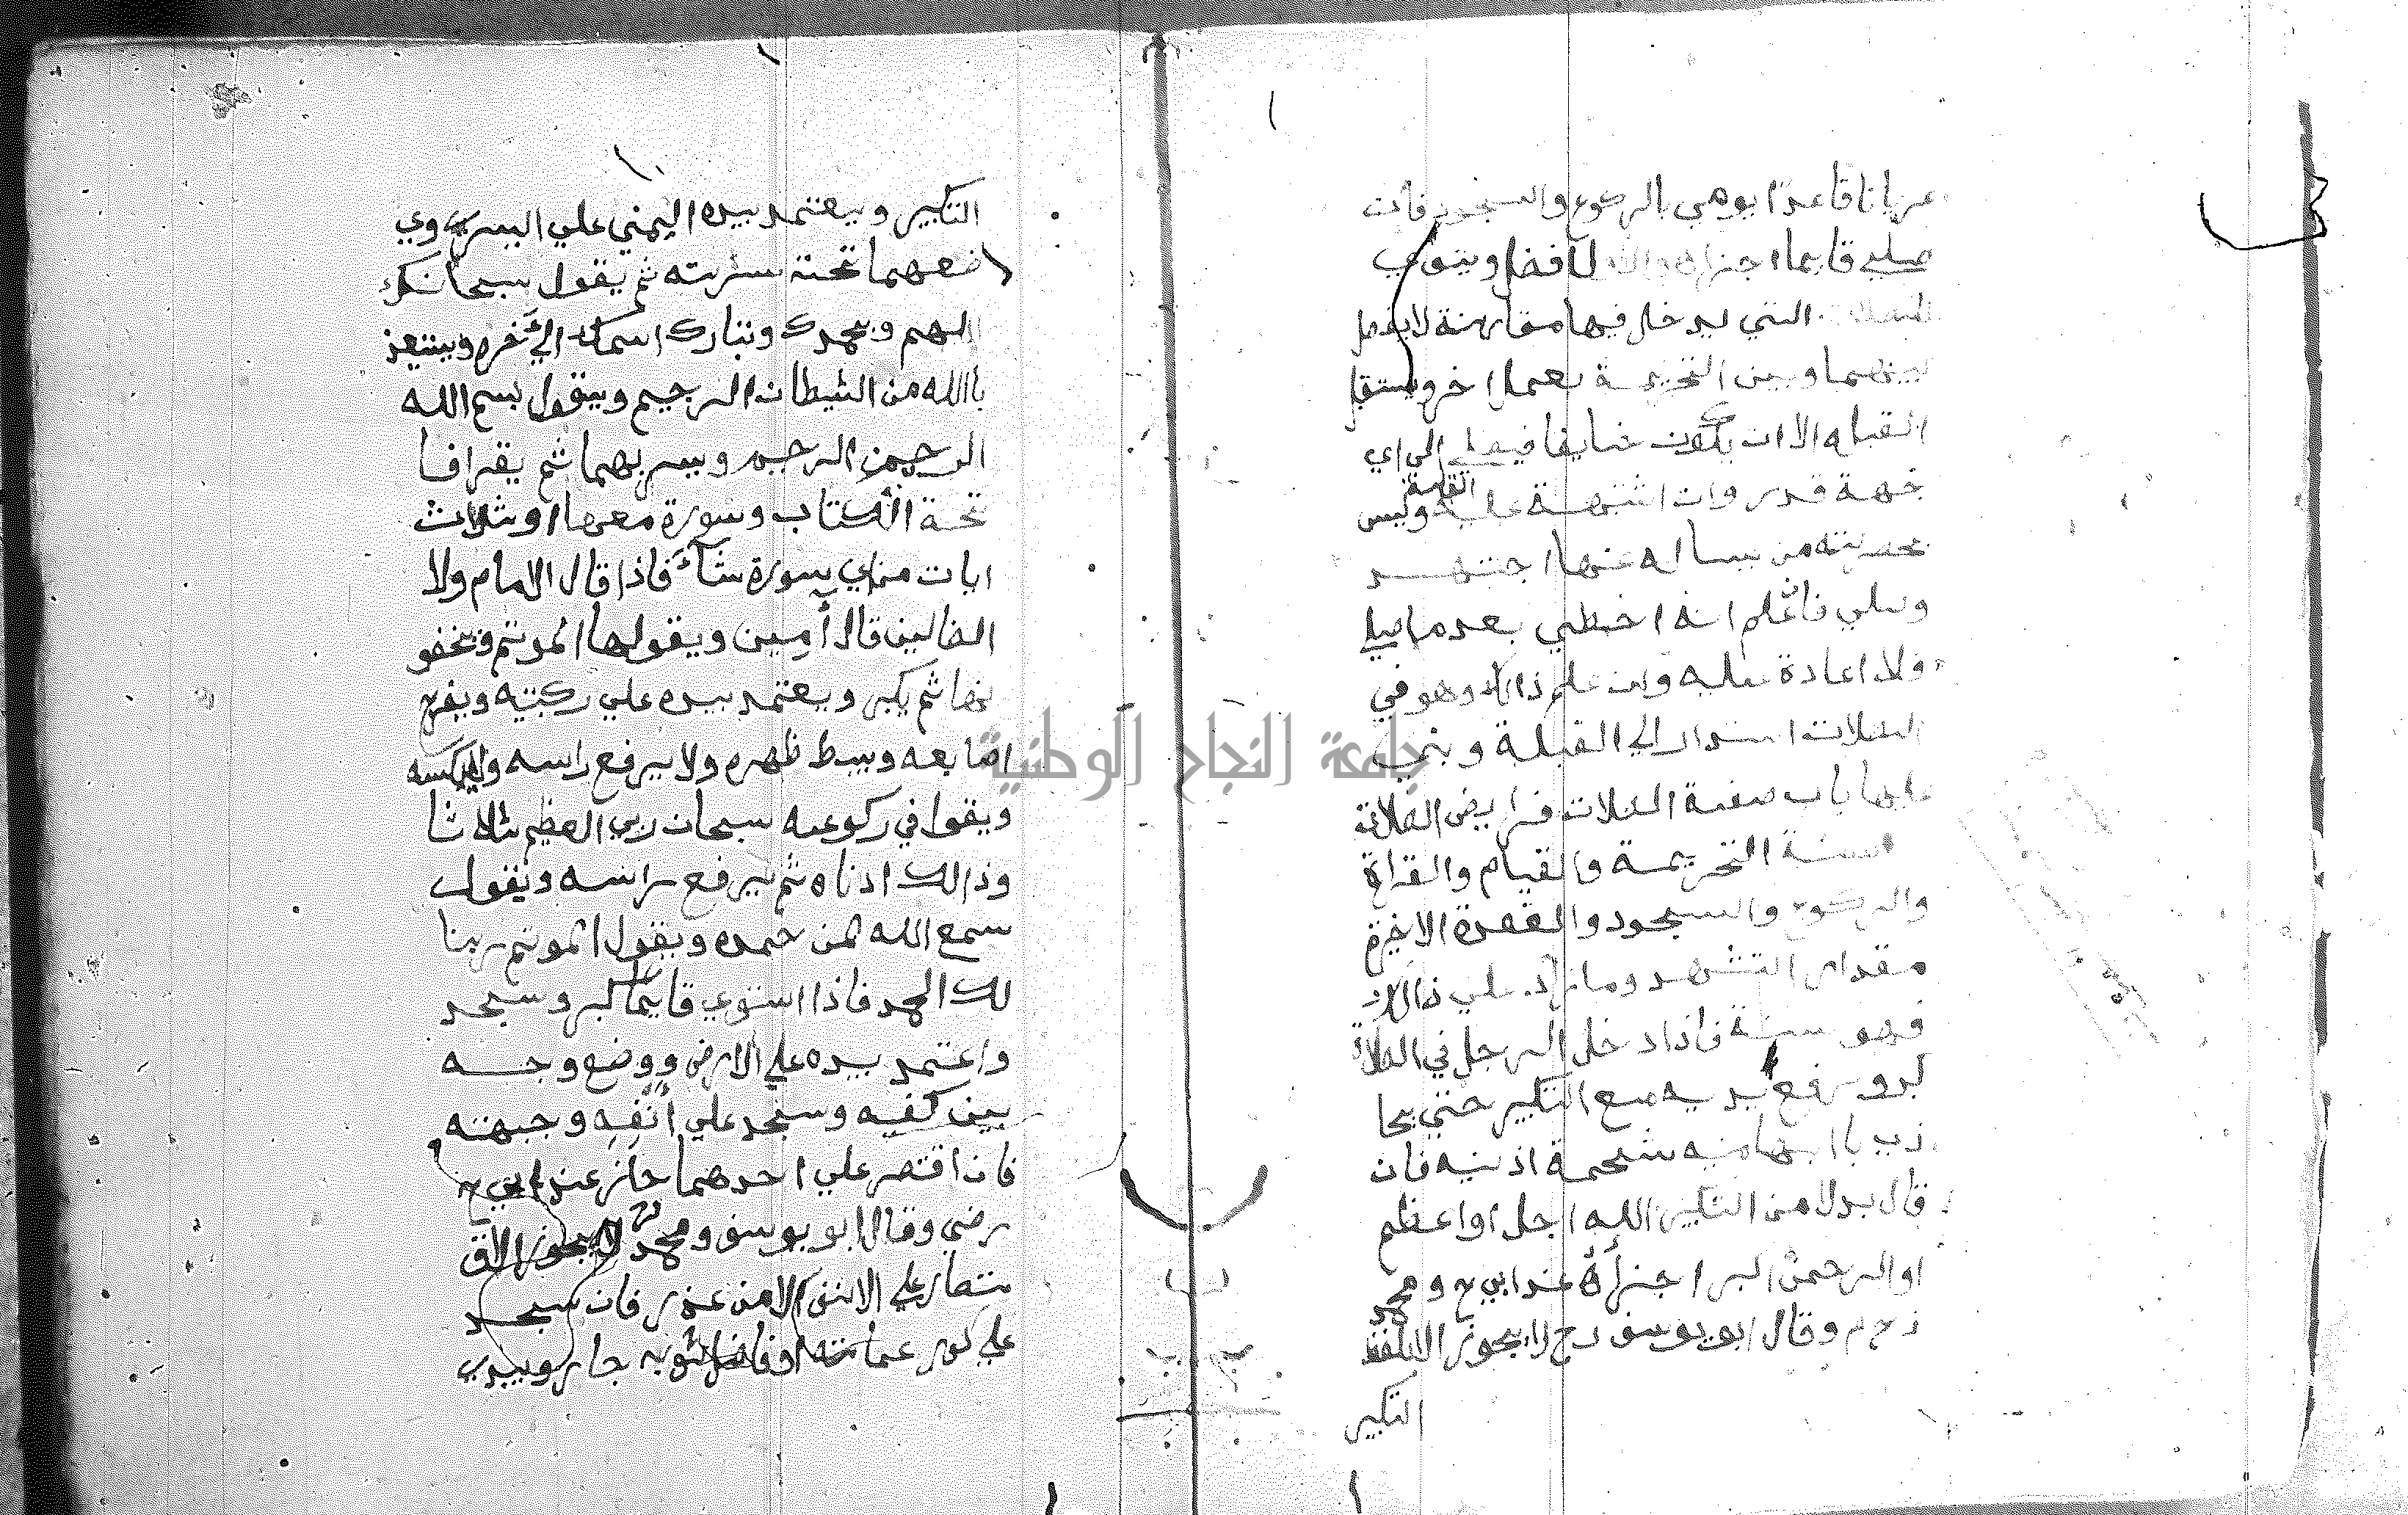 عريانا قاعدا يومي بالركوع والسجود فان
صلي قايما اجزاه والاول افضل وينوي
للصلاة التي يدخل فيها مقارنة لا يفصل
بينهما وبين التحريمة بعمل اخر ويستقبل
القبله الا ان يكون خايفا فيصلي الي اي
جهة قدر وان اشتبهة عليه القبلة وليس
بحضرته من يساله عنها اجتهد
وصلي فان علم انه اخطي بعد ما صلي
فلا اعادة عليه وان علم ذالك وهو في
الصلات استدار الي القبلة وبني
عليها باب صفة الصلات فرايض الصلاة
ستة التحريمة والقيام والقراة
والركوع والسجود والقعدة الاخيرة
مقدار التشهد وما زاد علي ذالك
فهو سنة فاذا دخل الرجل في الصلاة
كبر ورفع يديه مع التكبير حتي يحا
ذي باابهاميه شحمة اذنيه فان
قال بدلا من التكبير الله اجل او اعظم
او الرحمن اكبر اجزأه عند ابي ح ومحمد
رح م وقال ابو يوسف رح لا يجوز الا بلفظ
التكبير
التكبير ويعتمد بيده اليمني علي اليسري وي
ضعهما تحتة سرته ثم يقول سبحانك
اللهم وبحمدك وتبارك اسمك الي آخره ويستعذ
باالله من الشيطان الرجيم ويقول بسم الله
الرحمن الرحيم ويسر بهما ثم يقرا فا
تحة الكتاب وسورة معها او ثلاث
ايات من اي سورة شآء فاذا قال الامام ولا
الضالين قال أمين ويقولها المؤتم ويخفو
نها ثم يكبر ويعتمد بيده علي ركبتيه ويفرج
اصابعه ويبسط ظهره ولا يرفع راسه ولا ينكسه
ويقوا في ركوعه سبحان ربي العظيم ثلاثا
وذالك ادناه ثم يرفع راسه ويقول
سمع الله لمن حمده ويقول المؤتم ربنا
لك الحمد فاذا استوي قايما كبر وسجد
واعتمد بيده علي الارض ووضع وجهه
بين كفيه وسجد علي أنفه وجبهته
فان اقتصر علي احدهما جاز عند ابي ح
رضي وقال ابو يوسف ومحمد لا يجوز الاق
تصار علي الانف الا من عذر فان سجد
علي كور عمامته او فاضل ثوبه جاز ويبدي
جامعة النجاح الوطنية